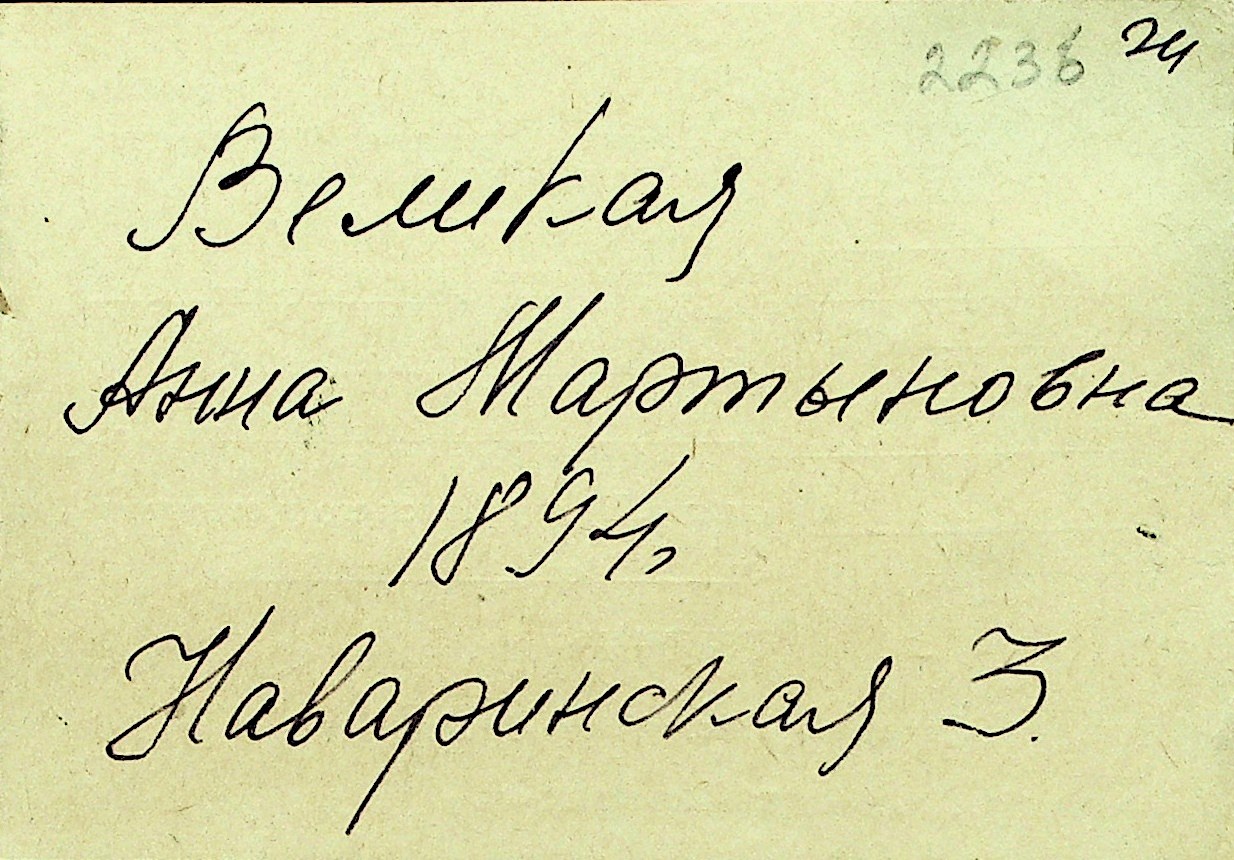 Великая
Анна Мартыновна
1894,
Наваринская 3.